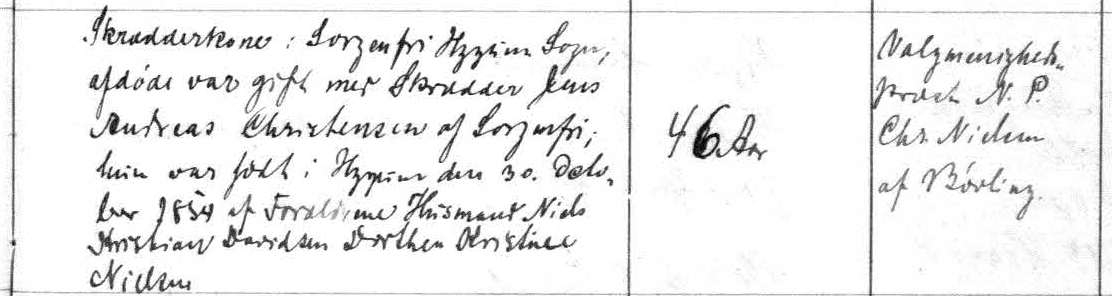 Skrædderkone i Sorgenfri Hyggum Sogn,
afdøde var gift med Skrædder Jens
Andreas Christensen af Sorgenfri;
hun var født i Hyggum den 30. Octo-
ber 1854 af Forældrene Husmand Niels
Kristian Davidsen Dorthea Kristine
Nielsen
46 Aar
Valgmenigheds-
præst N. P.
Chr. Nielsen
af Bøvling